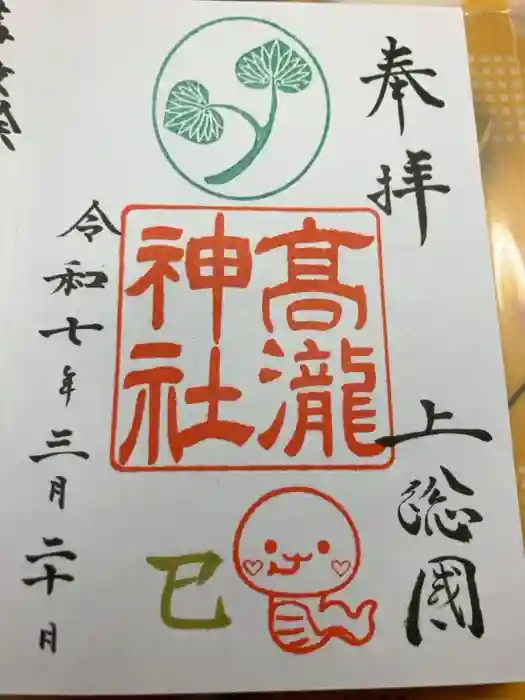 奉拝
上総國
髙瀧
神社
巳
令和七年三月二十日